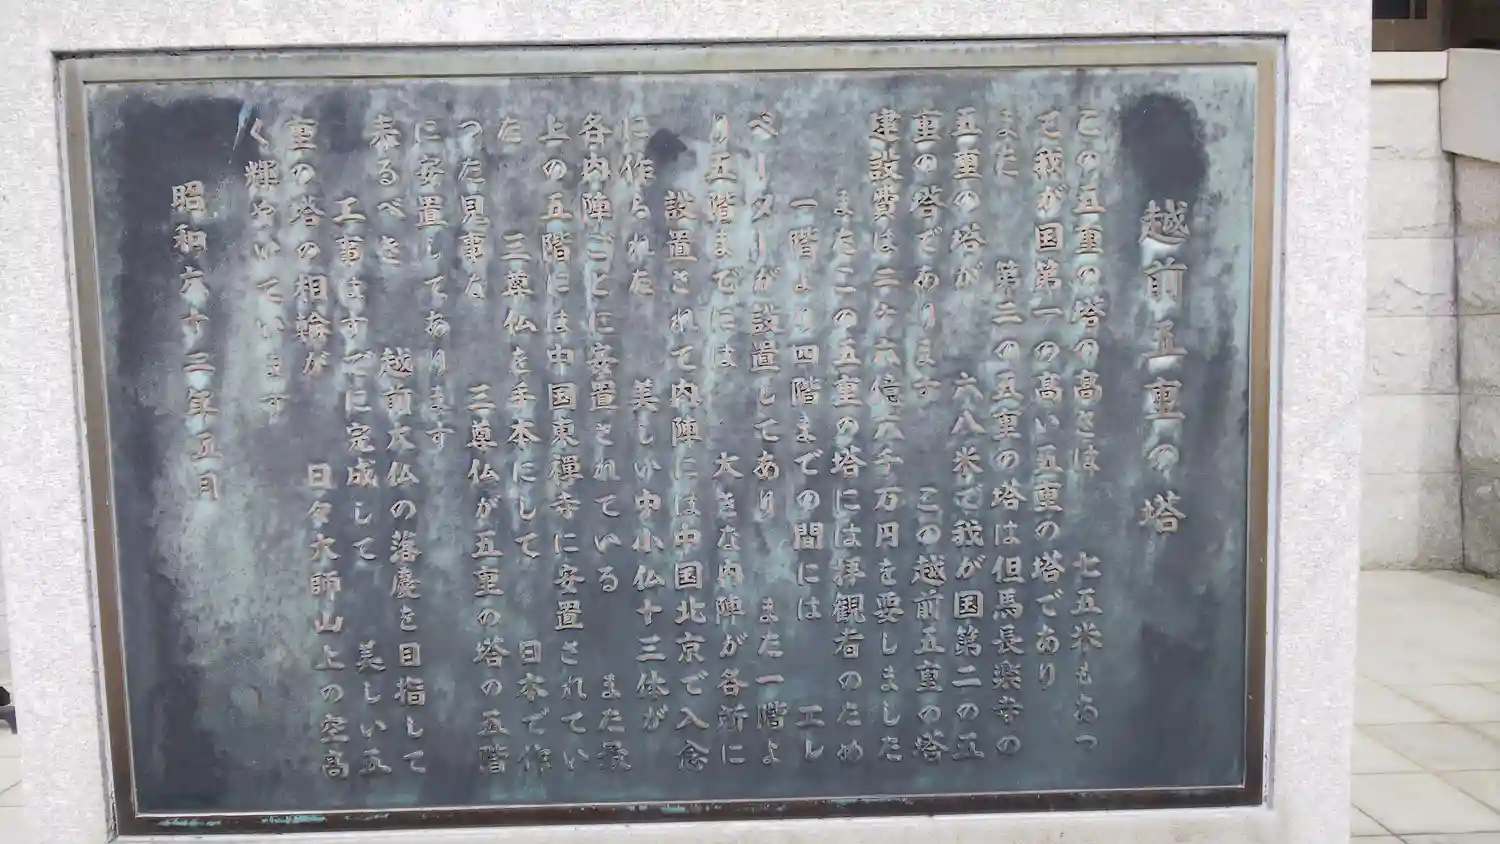 越前五重の塔
この五重の塔の高さは　七五米もあっ
て我が国第一の高い五重の塔であり
また　第三の五重の塔は但馬長楽寺の
五重の塔が　六八米で我が国第二の五
重の塔であります　この越前五重の塔
建設費は二ヶ六億六千万円を要しました
またこの五重の塔には拝観者のため
一階より四階までの間には　エレ
ベーターが設置してあり　また一階よ
り五階までには　大きな内陣が各所に
設置されて内陣には中国北京で入念
に作られた　美しい中小仏十三体が
各内陣ごとに安置されている　また最
上の五階には中国東禅寺に安置されてい
た　三尊仏を手本にして　日本で作
った見事な　三尊仏が五重の塔の五階
に安置してあります
来るべき　越前大仏の落慶を目指して
工事はすでに完成して　美しい五
重の塔の相輪が　日々大師山上の空高
く輝やいています
昭和六十三年五月